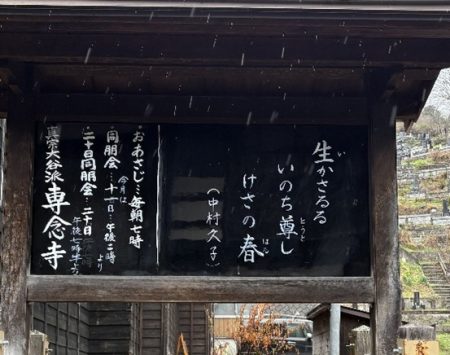 生かさるる
いのち尊し
けさの春
(中村久子)
おあさじ…毎朝七時
同朋会…十一日午後二時
今月は
より
二十日同朋会…二十日
午後七時半から
真宗大谷派 専念寺